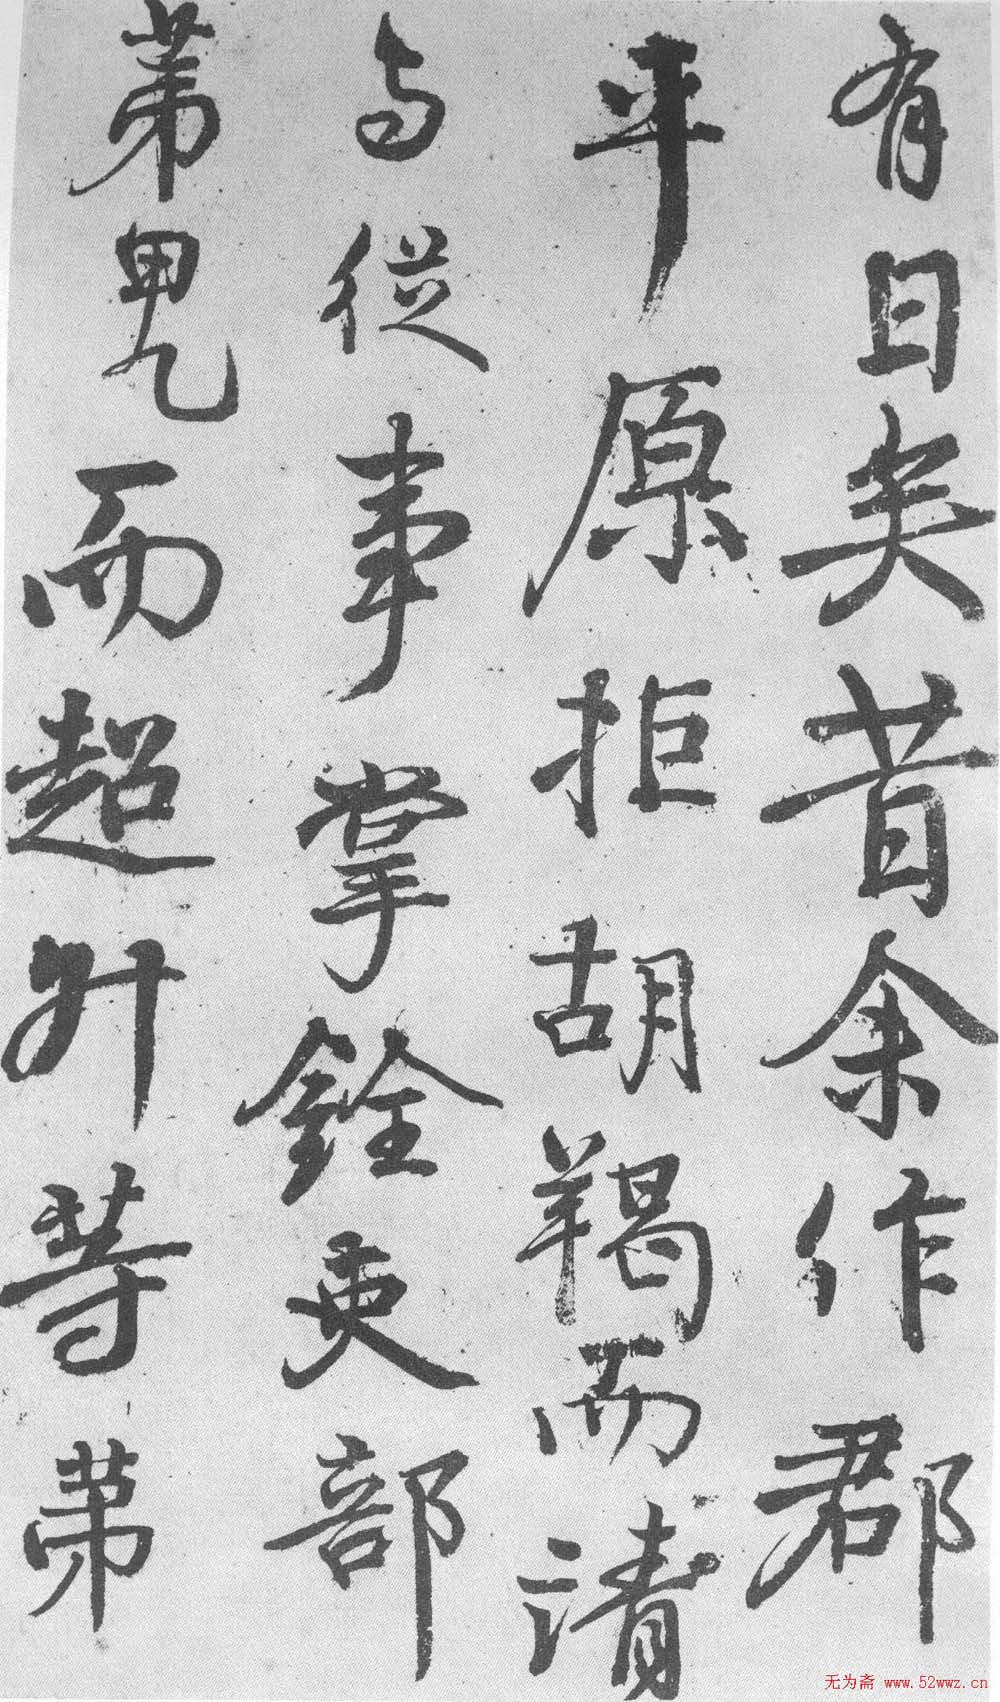 有日矣昔余作郡
平原拒胡羯而请
与从事掌铨吏部
第甲乙而超升等第
无为斋 www.52wwz.cn